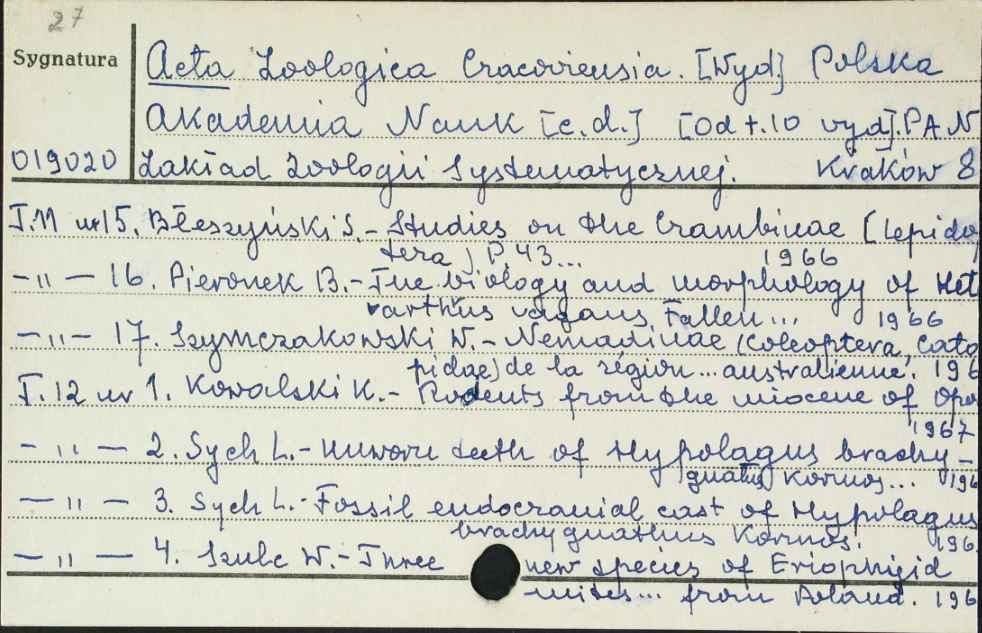 27
Sygnatura
Acta Zoologica Cracoviensia. [Wyd.] Polska
Akademia Nauk [c.d.] [Od t.10 wyd]. PAN
019020 Zakład Zoologii Systematycznej. Kraków 8
T.11 nr 15. Błeszyński S. - Studies on the Crambinae (Lepido
tera) P. 43... 1966
-"- 16. Pieronek B. - The biology and morphology of Het
rarthrus vagans, Fallen... 1966
-"- 17. Szymczakowski W. - Nemadinae (Coleoptera, Cato
pidae) de la région... australienne. 196
T.12 nr 1. Kowalski K. - Rodents from the miocene of Opo
1967
-"- 2. Sych L. - Unworn teeth of Hypolagus brachy-
gnatus Kormos... 196
-"- 3. Sych L. - Fossil endocranial cast of Hypolagus
brachygnathus Kormos. 196
-"- 4. Szulc W. - Three new species of Eriophyid
mites... from Poland. 196